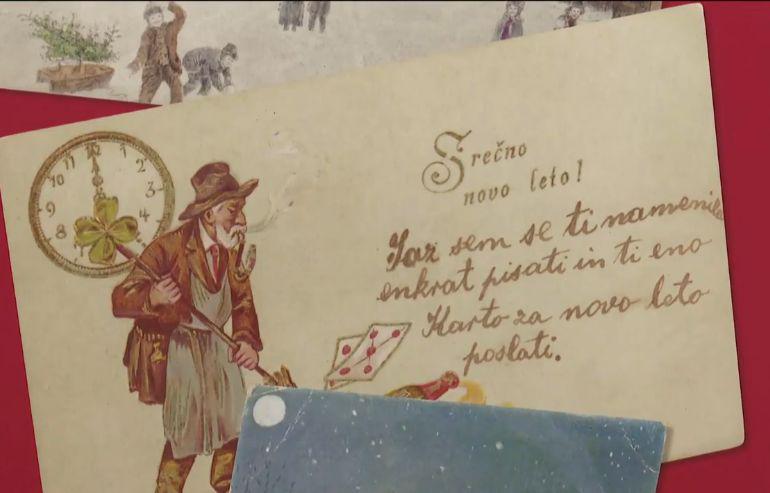 Srečno
novo leto!
Jaz sem se ti namenila
enkrat pisati in ti eno
Karto za novo leto
poslati.
11 12 1
10 2
9 3
8 4